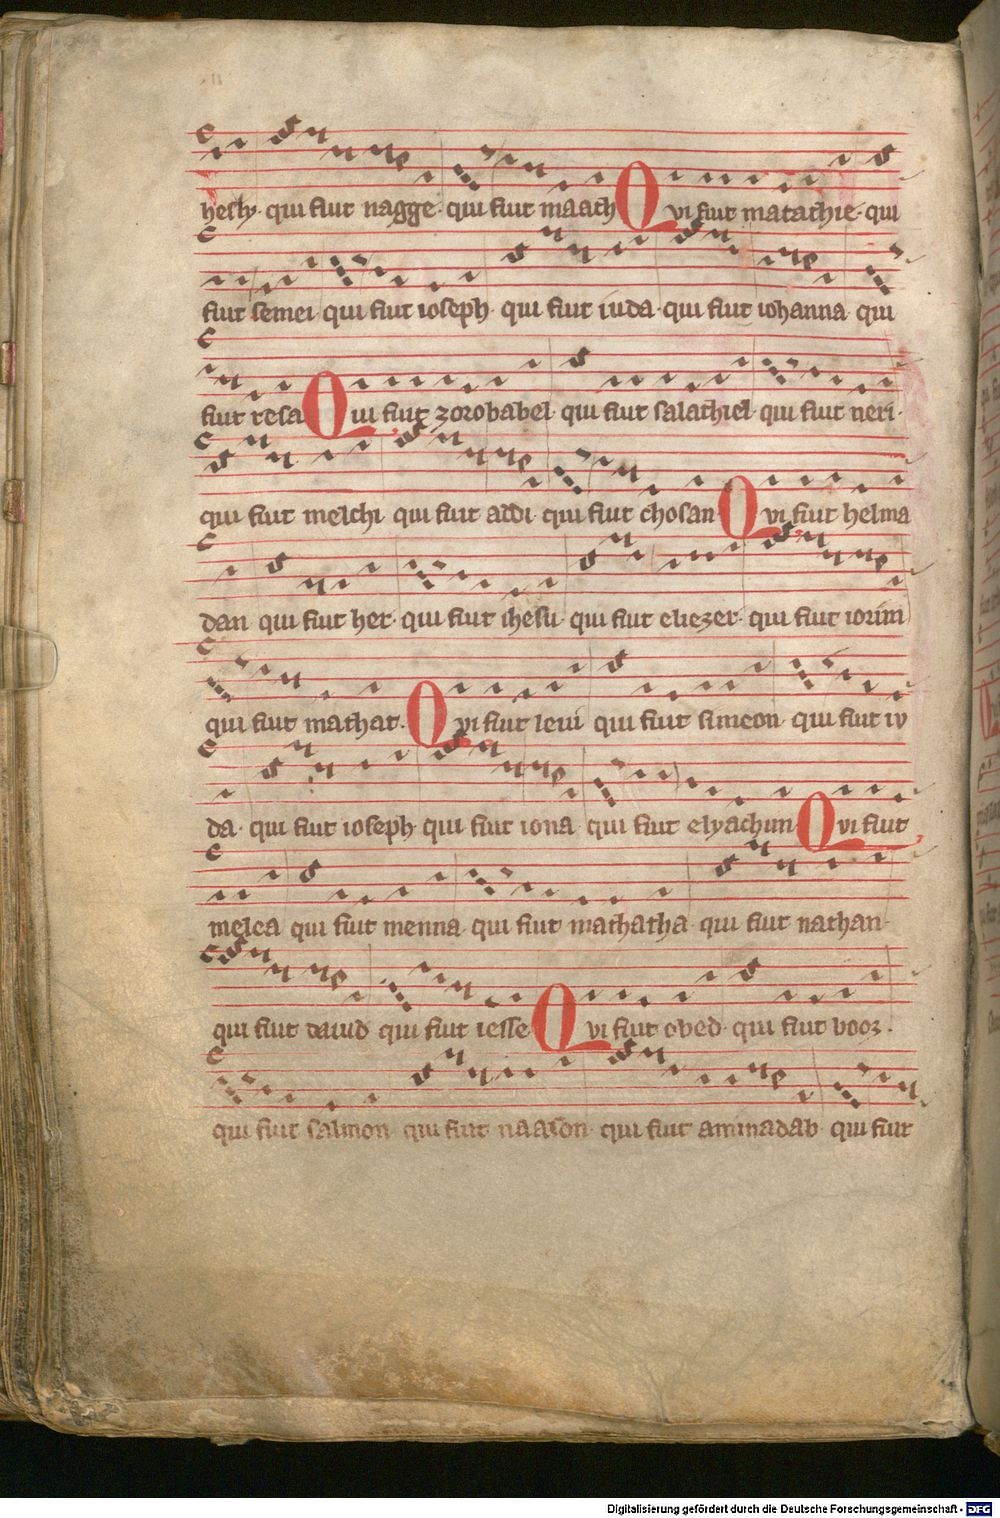 hesly· qui fuit nagge· qui fuit maath Qvi fuit matathie· qui
fuit semei· qui fuit ioseph· qui fuit iuda· qui fuit iohanna· qui
fuit resa Qui fuit zorobabel· qui fuit salathiel· qui fuit neri·
qui fuit melchi· qui fuit addi· qui fuit chosan Qvi fuit helma
dan qui fuit her· qui fuit ihesu· qui fuit eliezer· qui fuit iorim
qui fuit mathat· Qvi fuit leui qui fuit simeon· qui fuit iv
da· qui fuit ioseph· qui fuit iona· qui fuit elyachim Qvi fuit
melea qui fuit menna· qui fuit mathatha· qui fuit nathan·
qui fuit dauid qui fuit iesse Qvi fuit obed· qui fuit booz·
qui fuit salmon· qui fuit naason· qui fuit aminadab· qui fuit
Digitalisierung gefördert durch die Deutsche Forschungsgemeinschaft - DFG